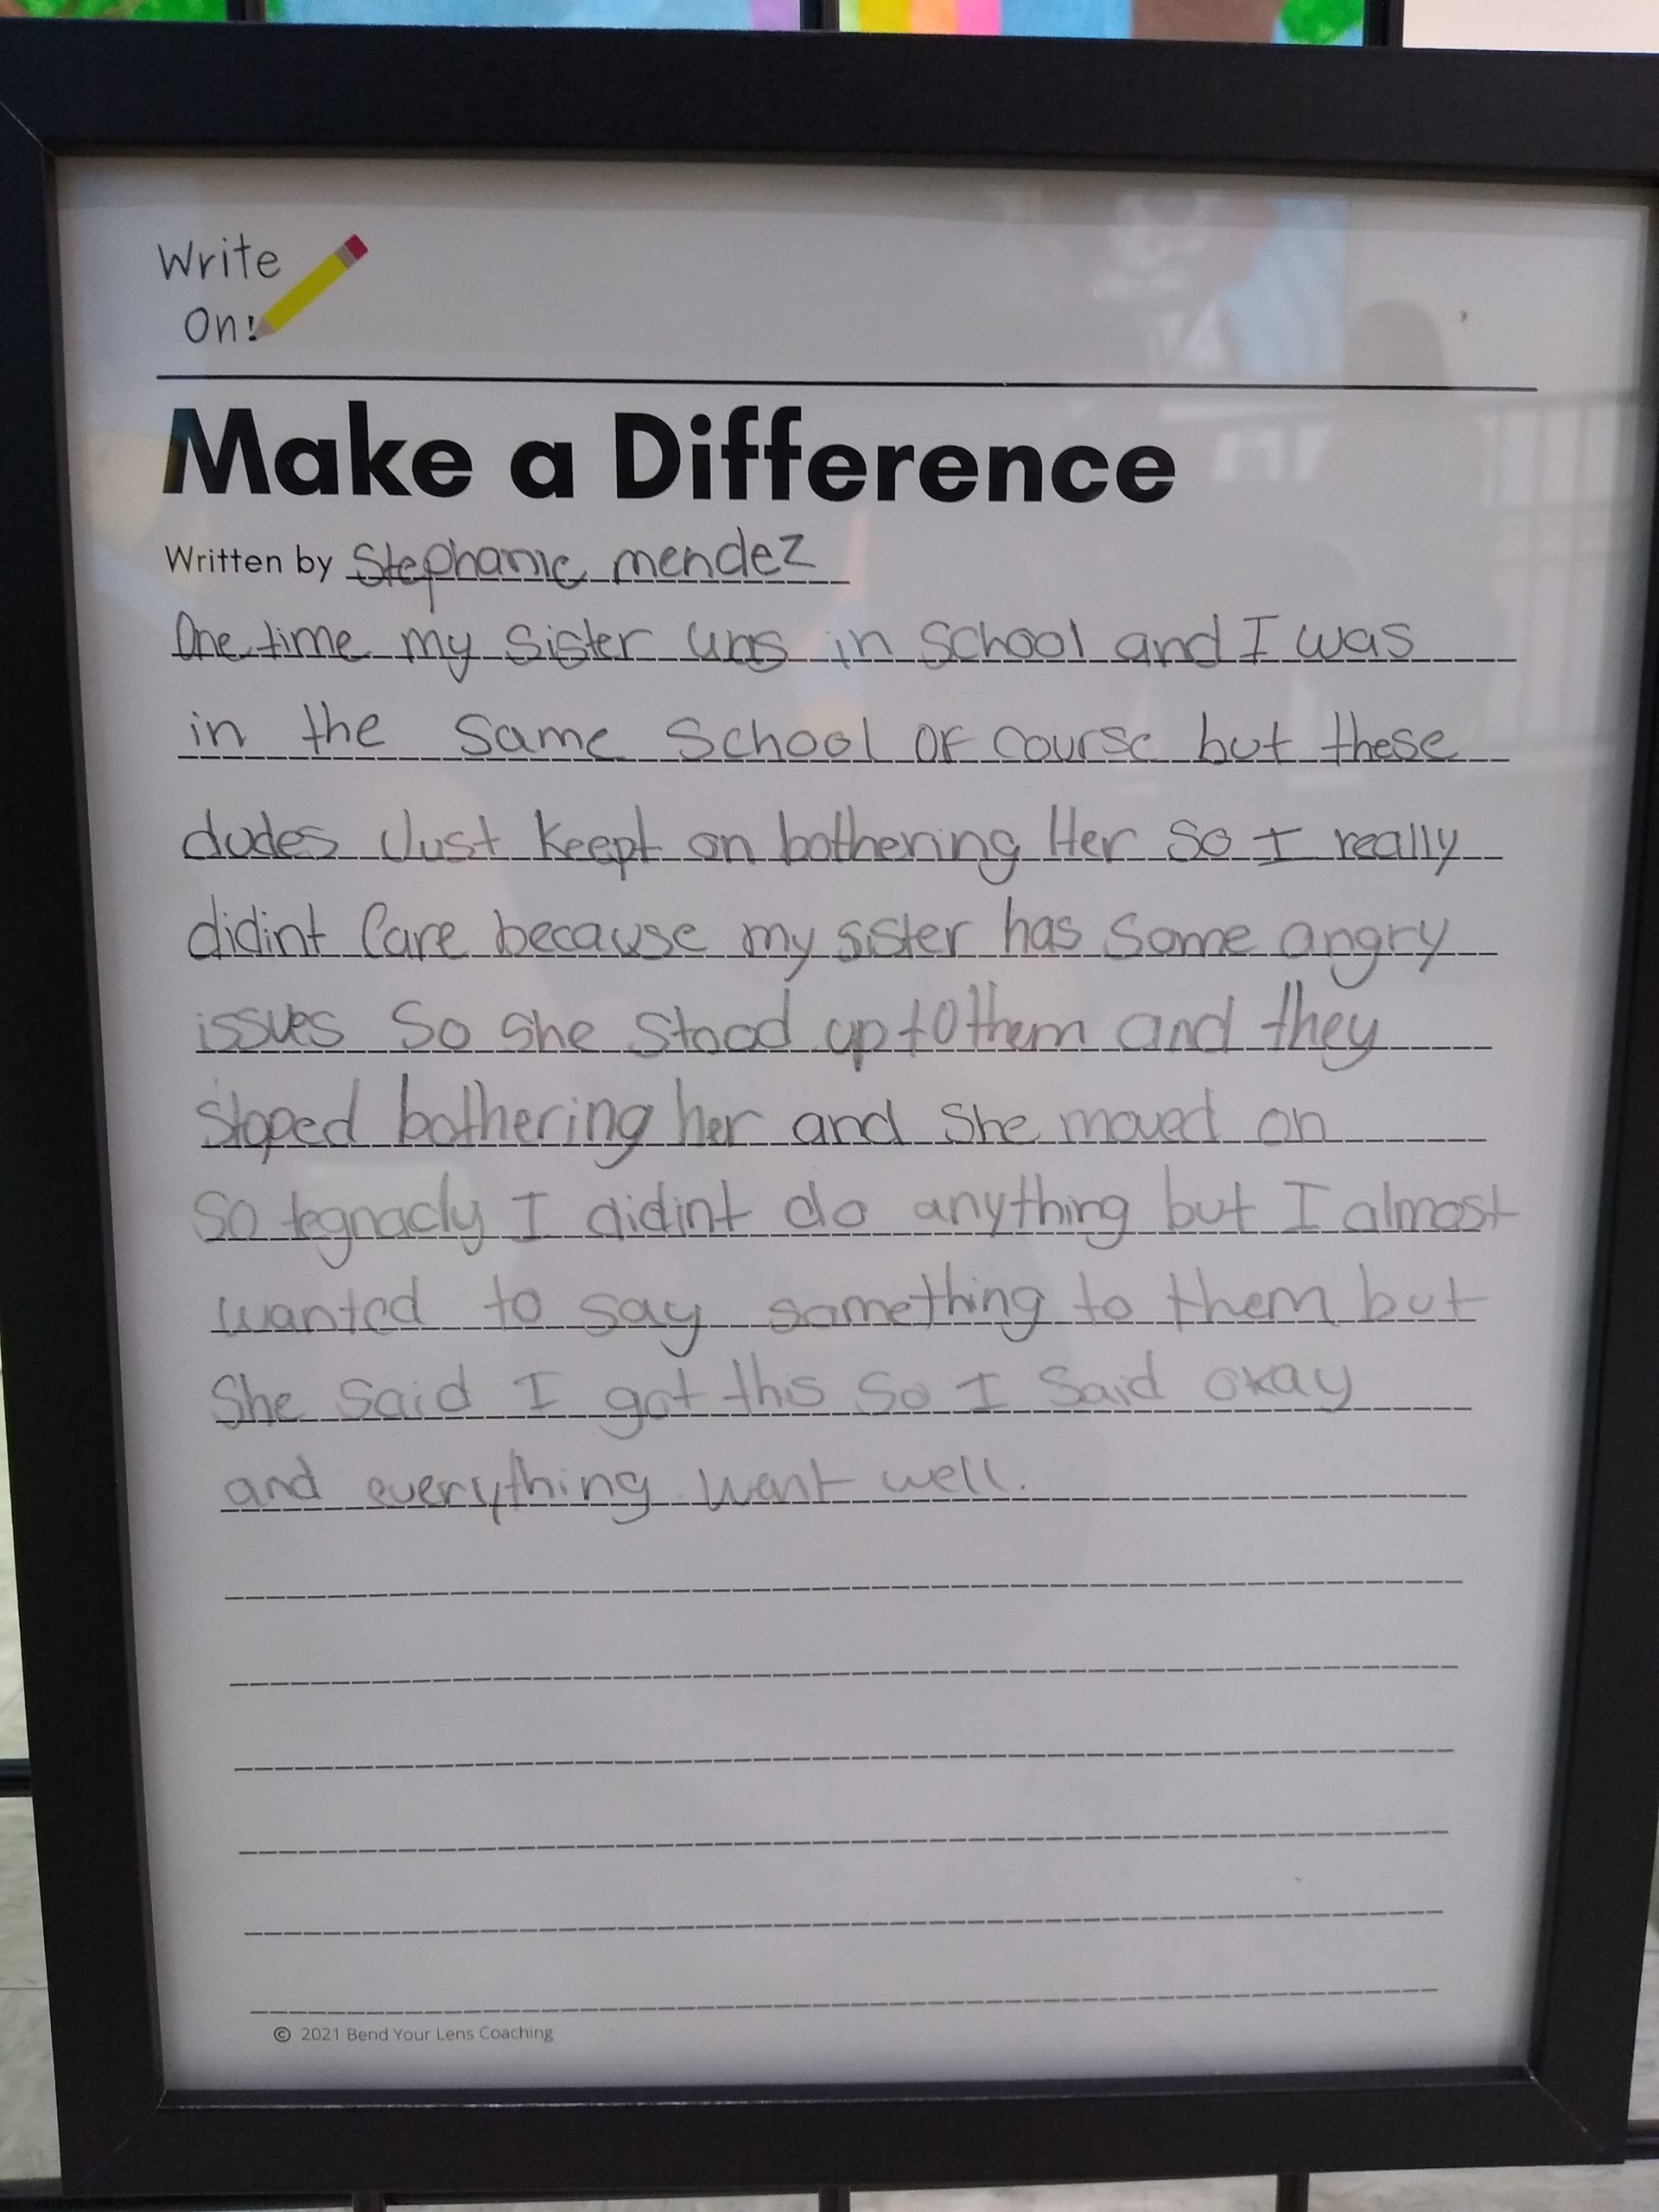 Write
On!
Make a Difference
Written by Stephanie mendez
One time my sister was in school and I was
in the same school of course but these
dudes Just keept on bothering Her so I really
didint Care because my sister has some angry
issues so she stood up to them and they
stoped bothering her and she moved on
so tegnacly I didint do anything but I almost
wanted to say something to them but
she said I got this so I said okay
and everything want well.
© 2021 Bend Your Lens Coaching